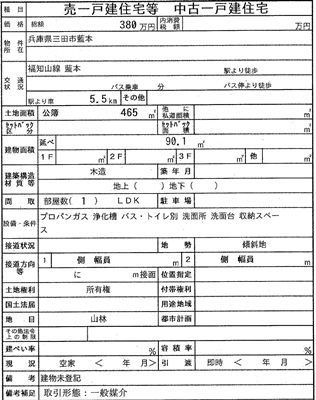 種目 売一戸建住宅等 中古一戸建住宅
価格 総額 380 万円 内消費税額 万円
物件所在 兵庫県三田市藍本
交通状況 福知山線 藍本
駅より徒歩
バス乗車 分 バス停より徒歩
駅より車 5.5km その他
土地面積 公簿 465 ㎡ 他に私道面積 ㎡
セットバック区分 セットバック面積 ㎡
建物面積 延べ 90.1 ㎡
1F ㎡ 2F ㎡ 3F ㎡ 他 ㎡
建築構造材質等 木造 築年月
地上( )地下( )
間取 部屋数( 1 ) LDK 駐車場
設備・条件 プロパンガス 浄化槽 バス・トイレ別 洗面所 洗面台 収納スペース
接道状況 地勢 傾斜地
接道方向等 1 側 幅員 m 2 側 幅員 m
に m接面 位置指定
土地権利 所有権 付帯権利
国土法届 用途地域
地目 山林 都市計画
その他法令上の制限
建ぺい率 % 容積率 %
現況 空家 < 年 月> 引渡 即時 < 年 月>
備考 建物未登記
備考補足 取引形態:一般媒介